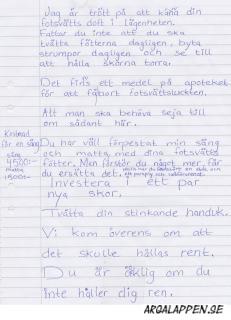 Jag är trött på att känna din
fotsvetts doft i lägenheten.
Fattar du inte att du ska
tvätta fötterna dagligen, byta
strumpor dagligen och se till
att hålla skorna torra.
Det finns ett medel på apoteket
för att få bort fotsvettslukten.
Att man ska behöva säja till
om sådant här.
Kostnad
för en säng
säng
4500:-
matta
1500:-
Du har väl förpestat min säng
och matta med dina fotsvetts
fötter. Man förstör du något mer får
du ersätta det.
Investera i ett par
nya skor.
Tvätta din stinkande handuk.
Vi kom överens om att
det skulle hållas rent.
Du är äcklig om du
inte håller dig ren.
ARGALAPPEN.SE